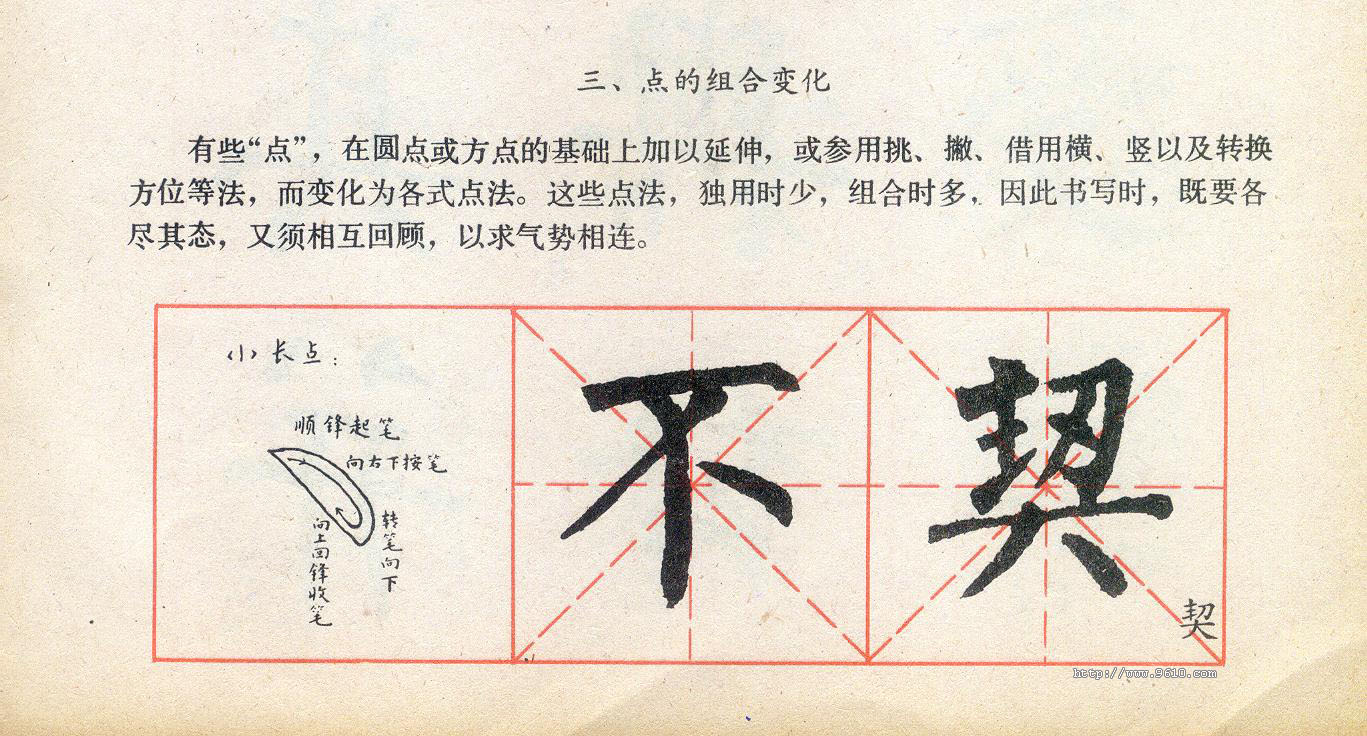 三、点的组合变化
有些“点”，在圆点或方点的基础上加以延伸，或参用挑、撇、借用横、竖以及转换
方位等法，而变化为各式点法。这些点法，独用时少，组合时多，因此书写时，既要各
尽其态，又须相互回顾，以求气势相连。
〈1〉长点：
顺锋起笔
向右下按笔
转笔向下
向上回锋收笔
不
契
契
http://www.9610.com